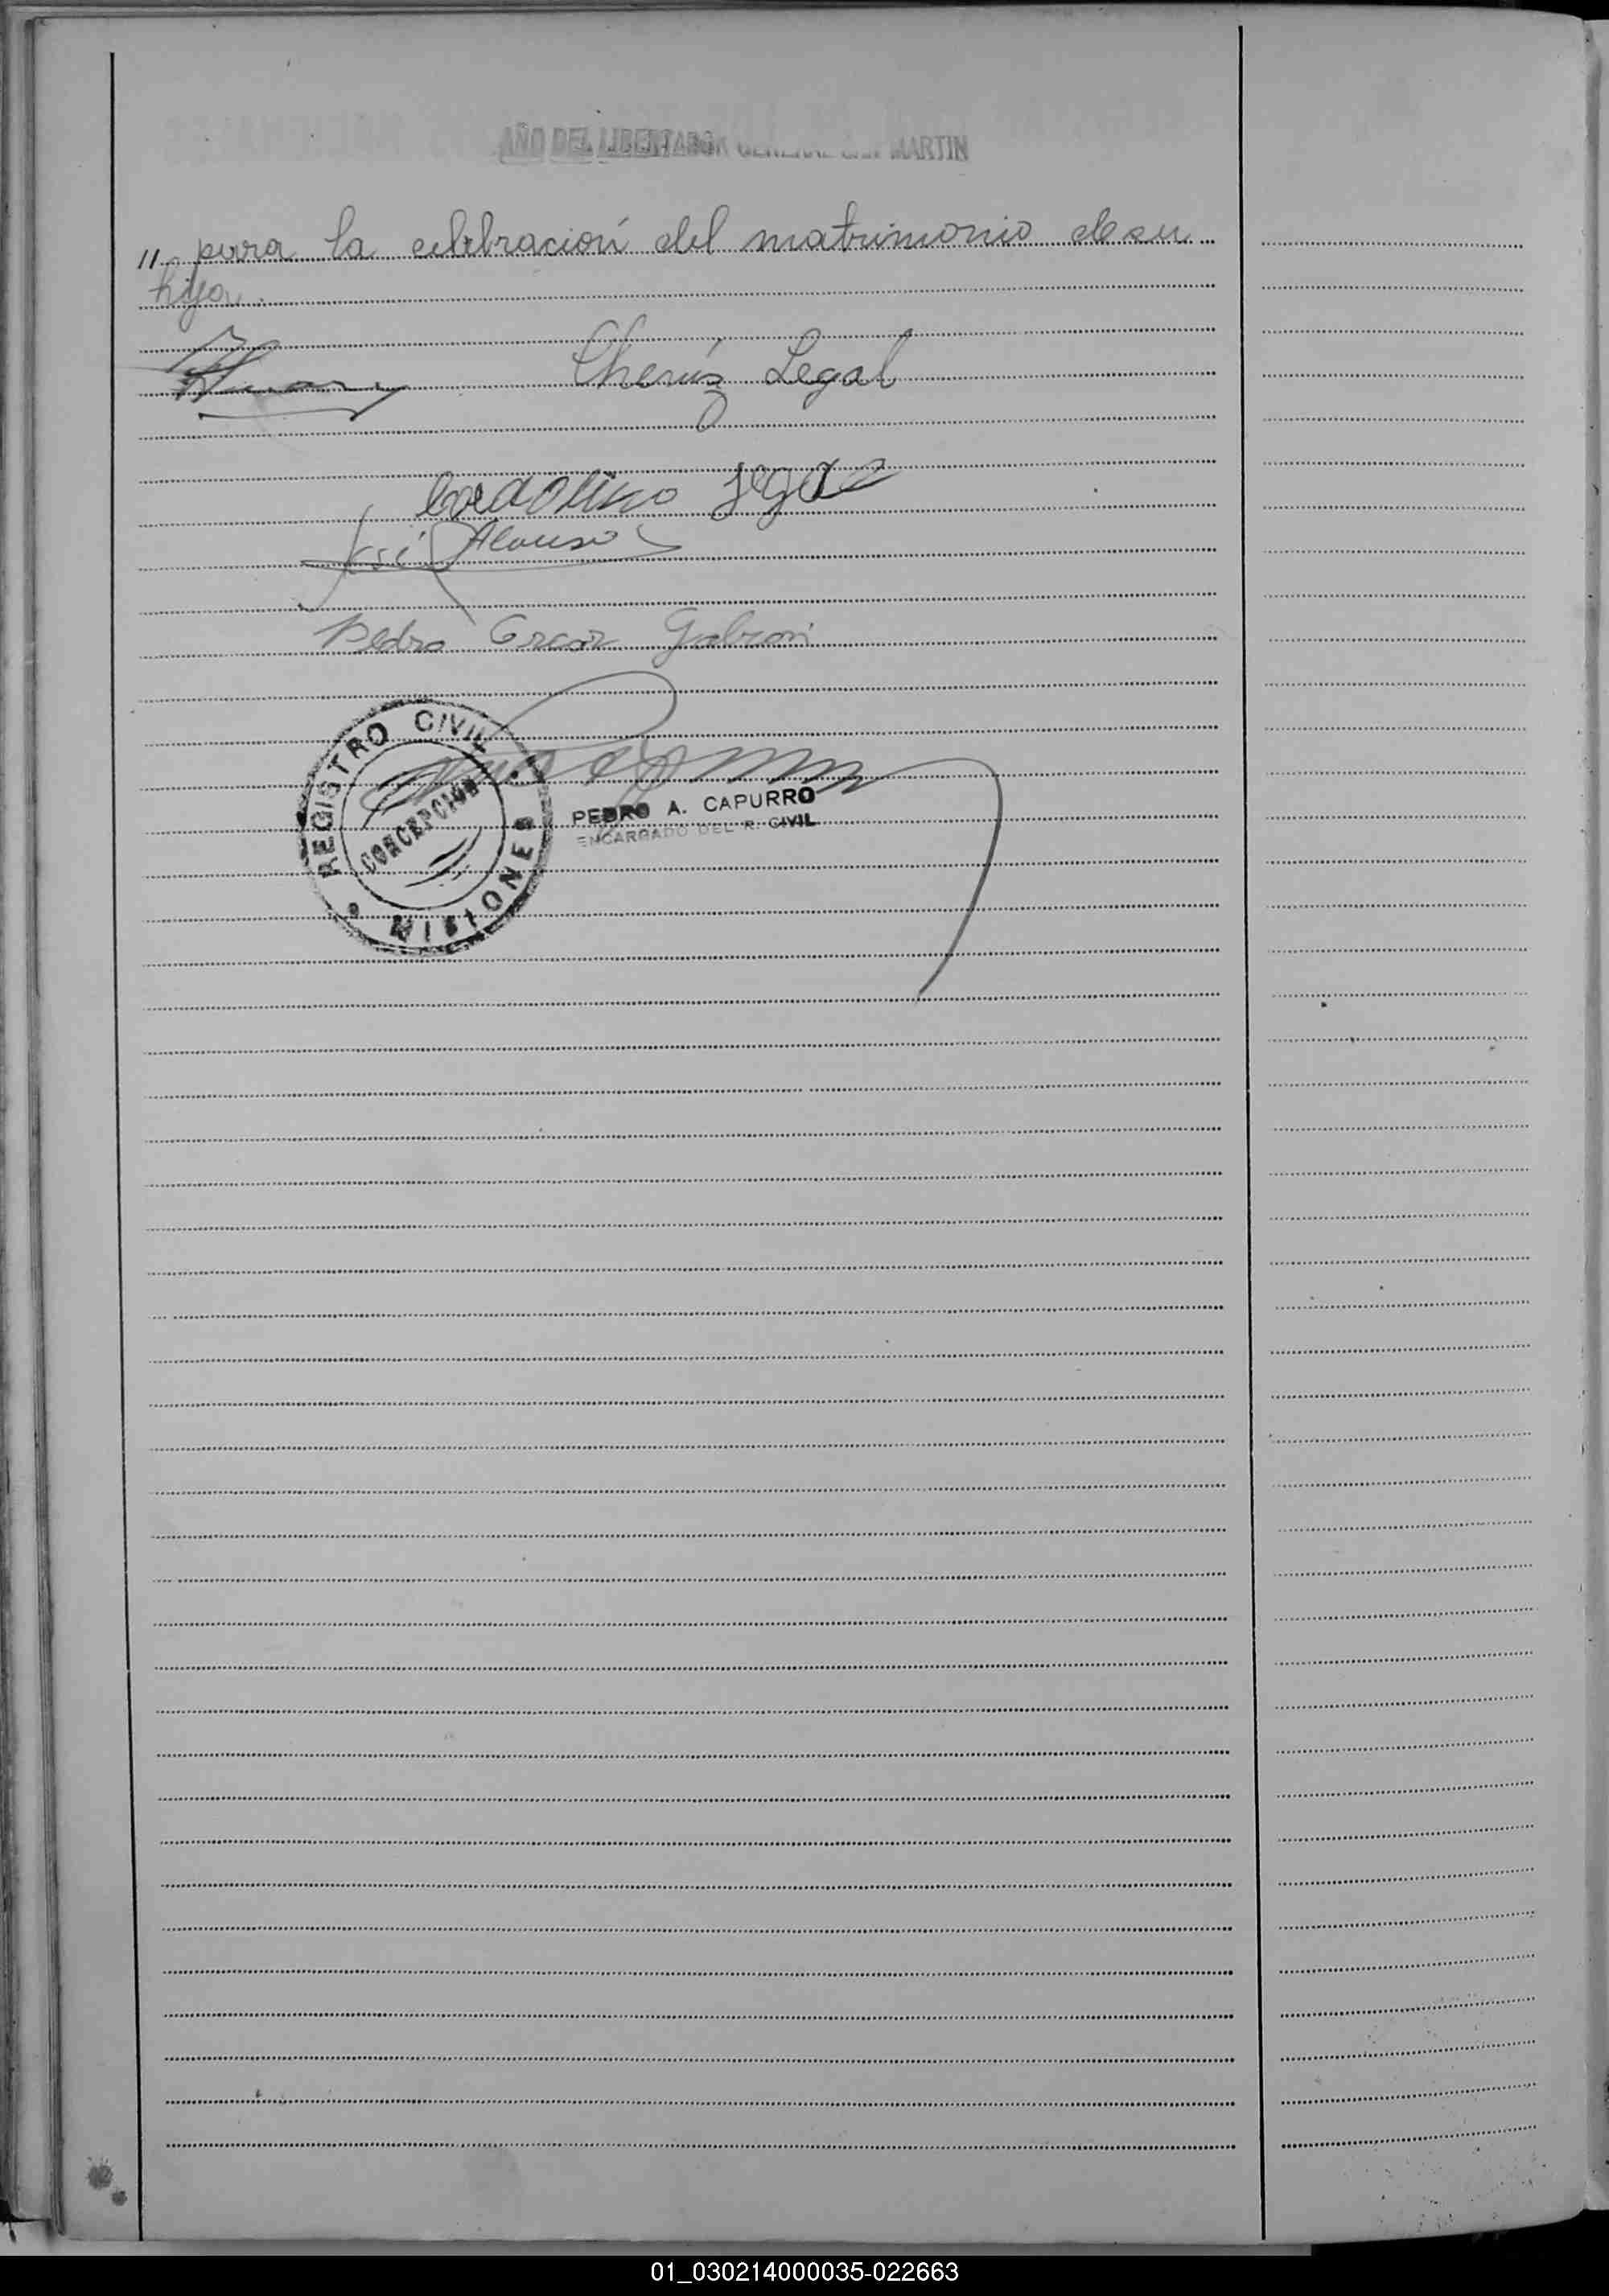 AÑO DEL LIBERTADOR GENERAL SAN MARTIN
" para la celebración del matrimonio de su
hija.
Legal
José Alonso
Pedro
REGISTRO CIVIL
CONCEPCION
MISIONES
PEDRO A. CAPURRO
ENCARGADO DEL R. CIVIL
01_030214000035-022663